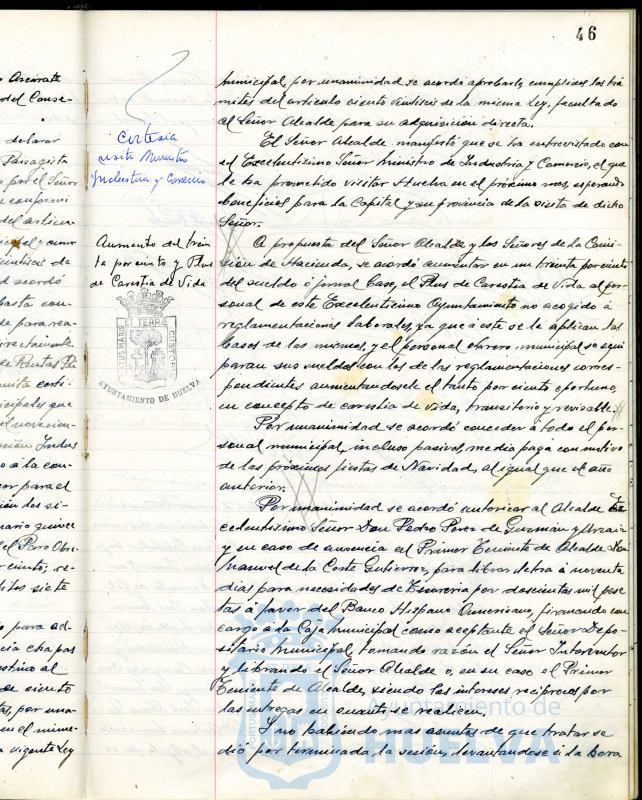 46
o Ascárate
del Conse-
declarar
Paisagista
o por el Señor
conformi
del artícu-
intiseis de
d acordó
basta con-
de para rea-
irectamente
de Rentas
mita certi-
nicipales que
novecien-
Indus
o a la con-
or para el
dos si-
nario quince
el Paro Obre-
ciento, se-
siete
o para ad-
cia chapas
al
ciento
tas, por una-
en el nume-
a vigente Ley
Cortesia
visita Ministro
Industria y Comercio
Aumento del trein
ta por ciento y Plus
de Carestia de Vida
ET TERRÆ
CUSTOD
PORTUS MARIS
AYUNTAMIENTO DE HUELVA
municipal, por unanimidad se acordó aprobarlo, cumplidos los trá
mites del artículo ciento veintiseis de la misma Ley, facultado
al Señor Alcalde para su adquisición directa.
El Señor Alcalde manifestó que se ha entrevistado con
el Excelentísimo Señor Ministro de Industria y Comercio, el que
le ha prometido visitar Huelva en el próximo mes, esperando
beneficios para la Capital y su provincia de la visita de dicho
Señor.
A propuesta del Señor Alcalde y los Señores de la Comi
sión de Hacienda, se acordó aumentar en un treinta por ciento
del sueldo ó jornal base, el Plus de Carestia de Vida al per-
sonal de este Excelentísimo Ayuntamiento no acogido á
reglamentaciones laborales, ya que á este se le aplican las
bases de las mismas, y el personal obrero municipal se equi
paran sus sueldos con los de las reglamentaciones corres-
pondientes aumentandosele el tanto por ciento oportuno,
en concepto de carestia de vida, transitorio y revisable.
Por unanimidad se acordó conceder á todo el per-
sonal municipal, incluso pasivos, media paga con motivo
de las próximas fiestas de Navidad, al igual que el año
anterior.
Por unanimidad se acordó autorizar al Alcalde Ex
celentísimo Señor Don Pedro Perez de Guzmán y Urzaiz
y en caso de ausencia al Primer Teniente de Alcalde Don
Manuel de la Corte Gutierrez, para librar letra á noventa
dias para necesidades de Tesoreria por doscientas mil pese
tas á favor del Banco Hispano Americano, firmando con
cargo á la Caja Municipal como aceptante el Señor Depo-
sitario Municipal, tomando razón el Señor Interventor
y librando el Señor Alcalde o, en su caso el Primer
Teniente de Alcalde, siendo los intereses reciprocos por
las entregas en cuanto se realicen.
Y no habiendo mas asuntos de que tratar se
dió por terminada la sesión, levantandose á la hora
Ayuntamiento de
HUELVA